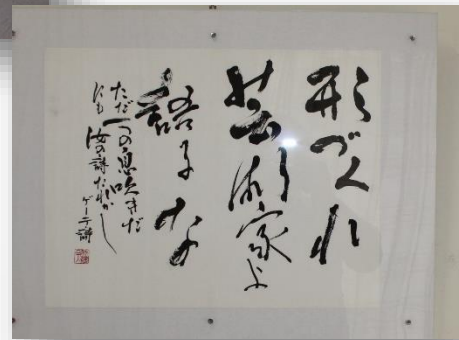 形づくれ
芸術家よ
語るな
ただ一つの息吹きだ
にも汝の詩たれかし
ゲーテ詩